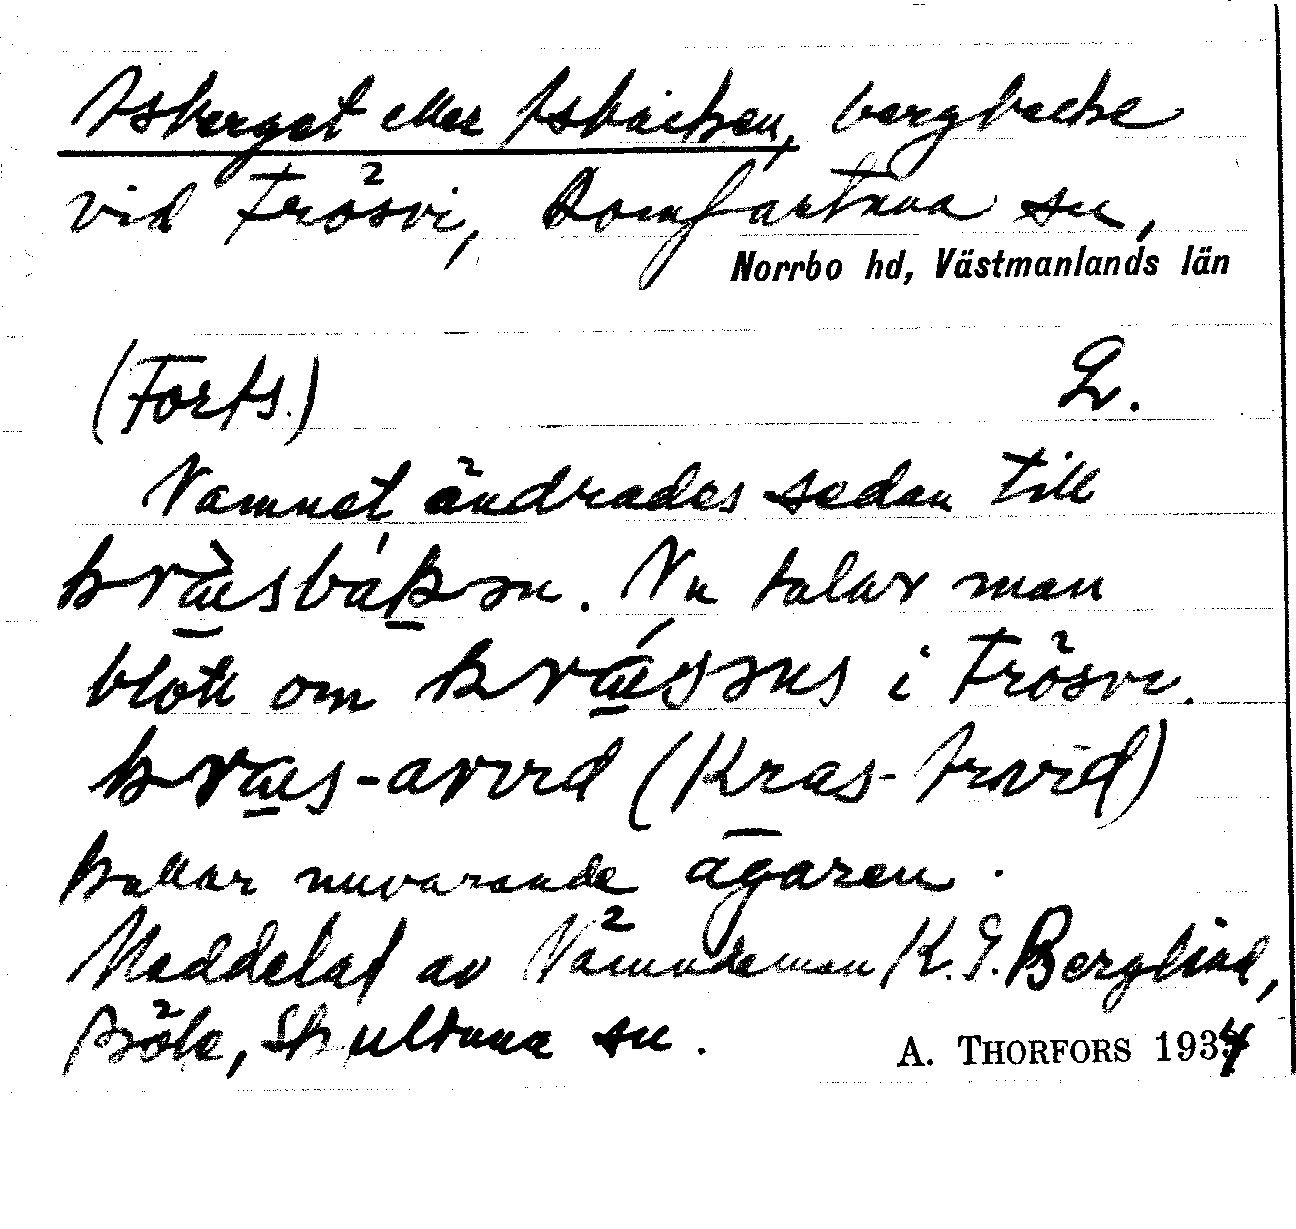 Asberget eller Asbacken, bergbacke
vid Frösvi, Romfartuna sn,
Norrbo hd, Västmanlands län
(Forts.) 2.
Namnet ändrades sedan till
kræsbakən. Nu talar man
blott om kræsəns i Frösvi.
kræs-arvid (Kras-Arvid)
kallar nuvarande ägaren.
Meddelat av Nämndeman K. G. Berglind,
Böle, Skultuna sn.
A. THORFORS 1934